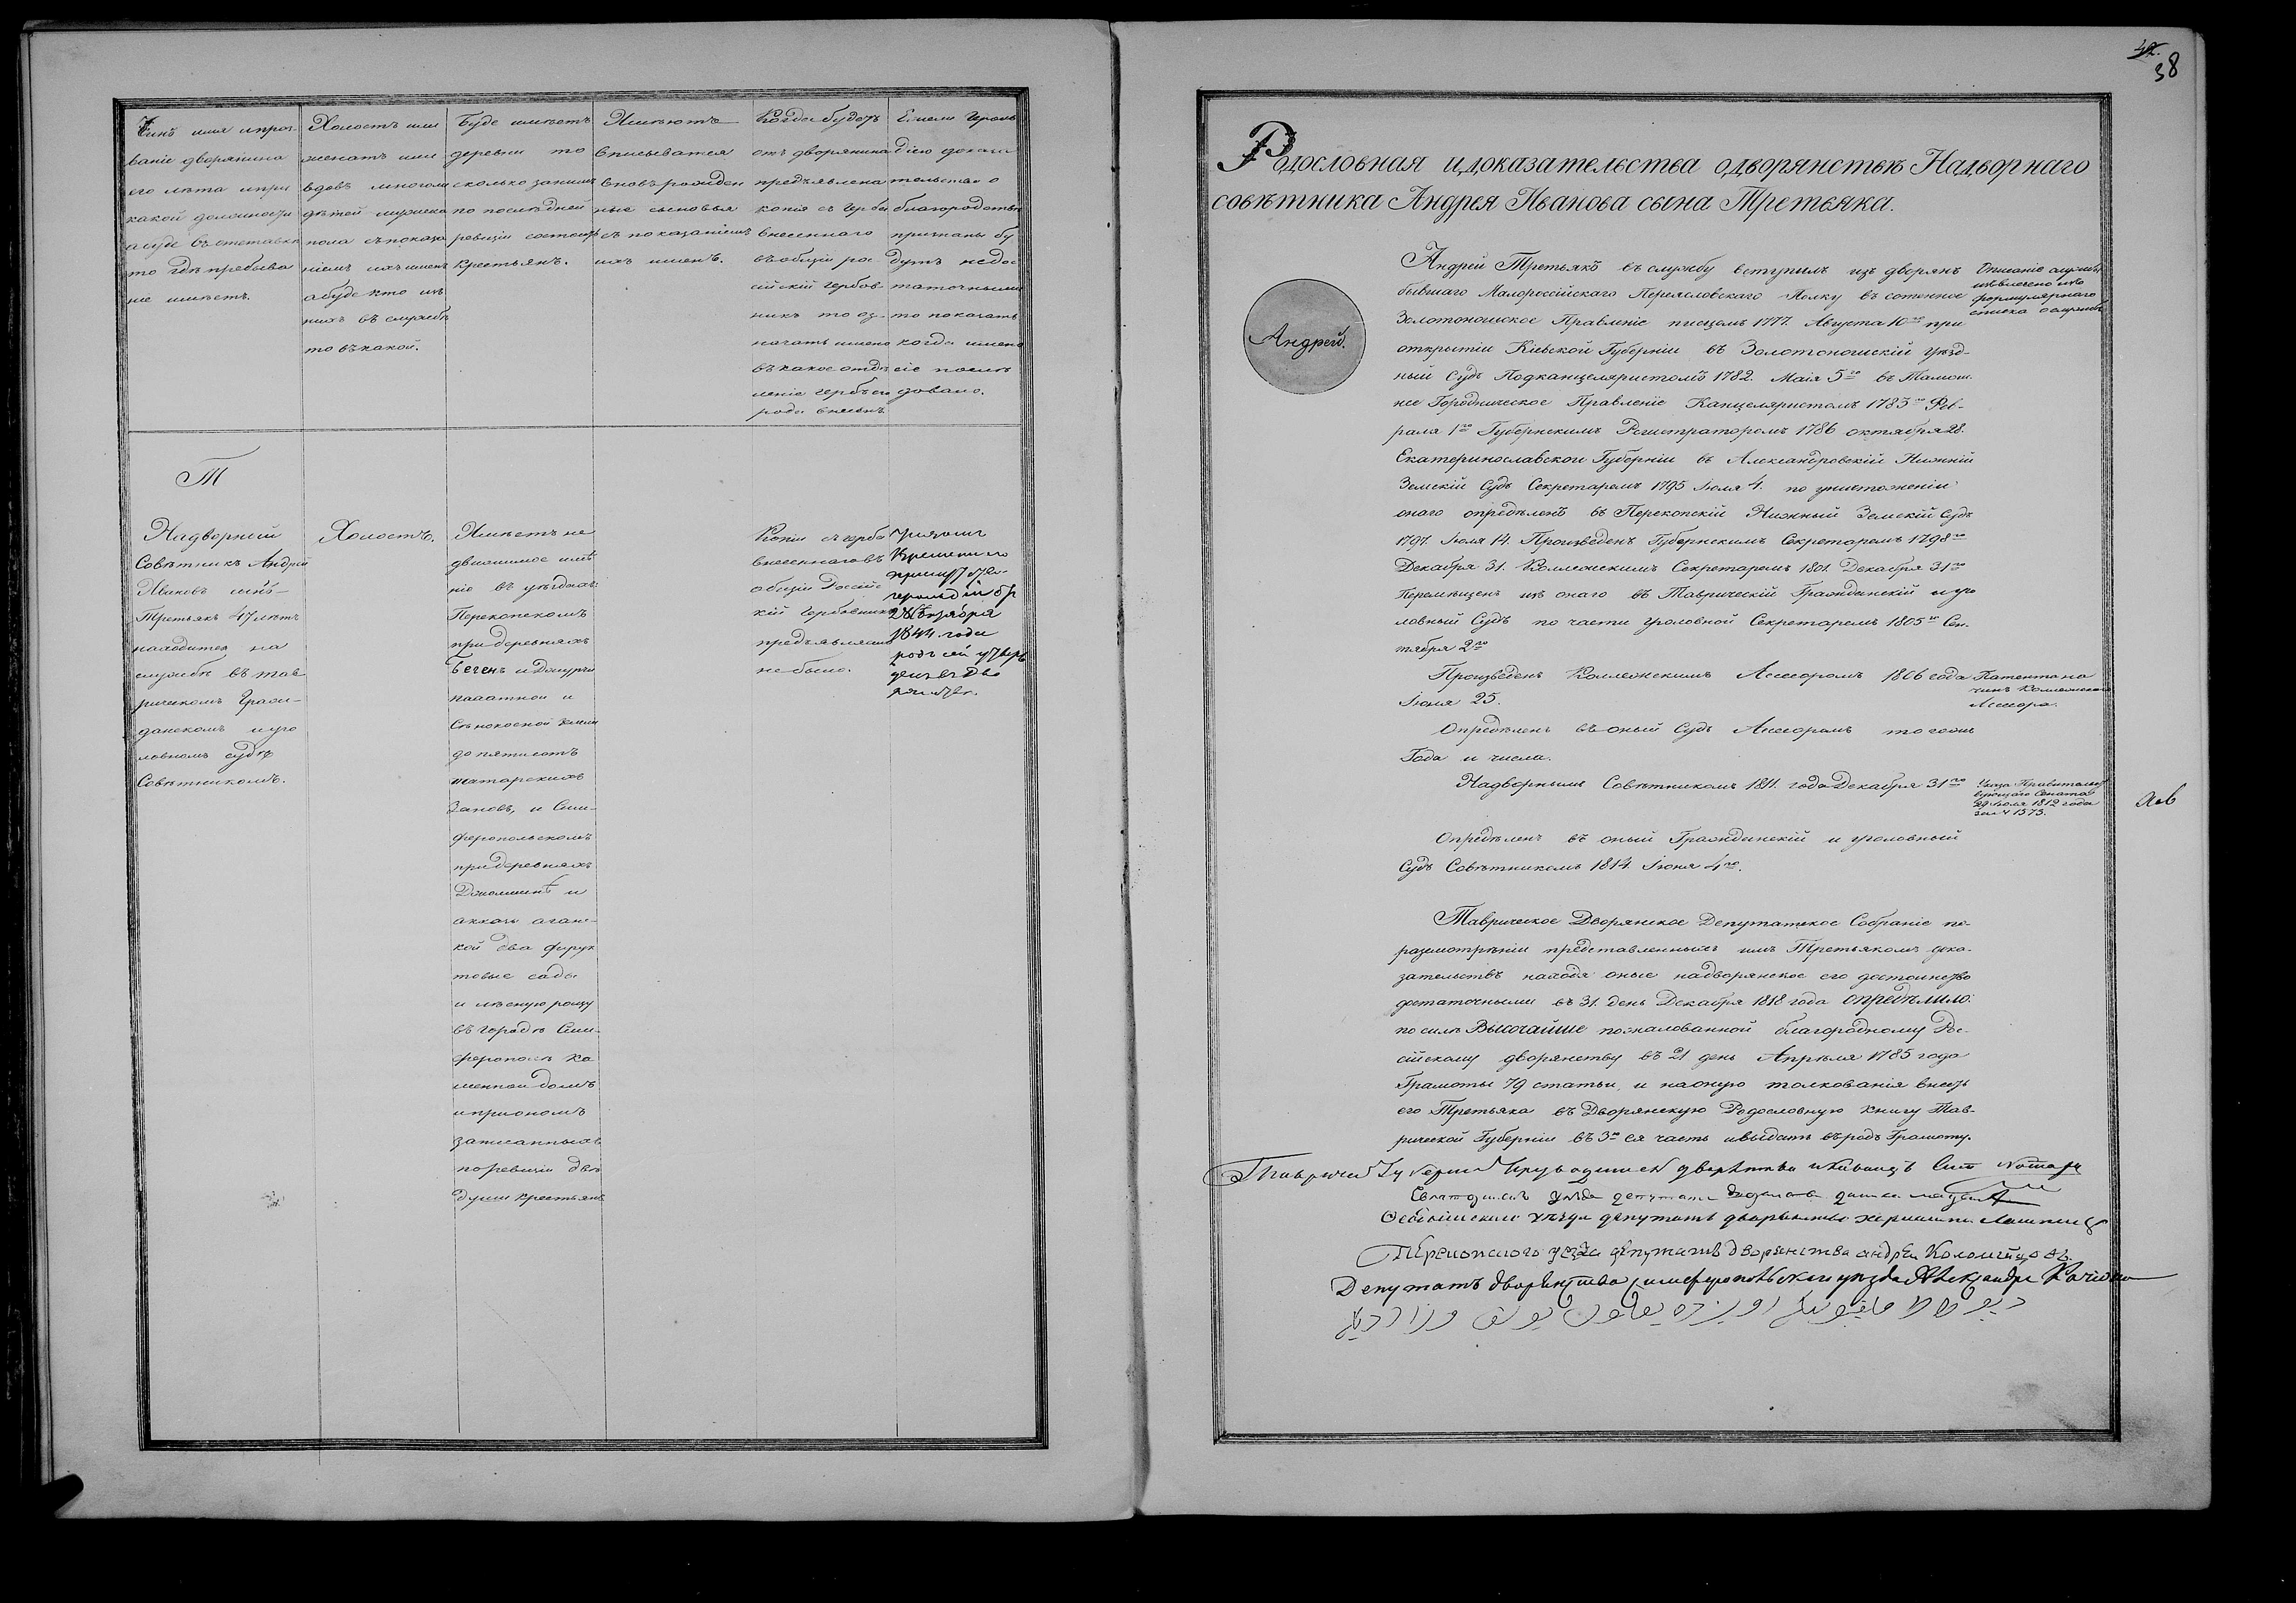 Чинъ имя и проз-
ваніе дворянина
его лѣта и при
какой должности
а буде въ отставкѣ
то гдѣ пребыва
ніе имѣетъ.
Холостъ или
женатъ или
вдовъ много ли
дѣтей мужеска
пола съ показа
ніемъ ихъ именъ
а буде кто изъ
нихъ въ службѣ
то въ какой.
Буде имѣетъ
деревни то
сколько за нимъ
по послѣдней
ревизіи состоитъ
крестьянъ.
Имѣютъ
вписыватся
вновь рожден
ные сыновья
съ показаніемъ
ихъ именъ.
Когда будетъ
отъ дворянина
предъявлена
копія съ герба
внесеннаго
въ общій рос
сійскій гербов-
никъ то оз-
начать имено
въ какое отдѣ
леніе гербъ его
рода внесенъ
Ежели героль
діею доказа
тельства о
благородствѣ
признаны бу
дутъ недос
таточными
то показать
когда имено
сіе послѣ
довало.
Т
Надворный
Совѣтникъ Андрей
Ивановъ сынъ
Третьякъ 47 лѣтъ
находится на
службѣ въ тав
рическомъ Граж-
данскомъ и уго
ловномъ судѣ
Совѣтникомъ.
Холостъ.
Имѣетъ не
движимое имѣ
ніе въ уѣздахъ
Перекопскомъ
при деревняхъ
Бегенъ и
пахатной и
Сѣнокосной земли
до пятисотъ
татарскихъ
Зановъ, и Сим-
феропольскомъ
при деревняхъ
и
два фрук
товые сады
и лѣсную рощу
въ городѣ Сим-
ферополѣ ка
менной домъ
и при ономъ
записанныхъ
по ревизіи двѣ
души крестьянъ
Копіи съ герба
внесеннаго въ
общій Россійс
кій Гербовникъ
предъявляемо
не было.
Указомъ
Временнаго
присутствія
герольдіи отъ
1844 года
родъ сей утверж
денъ въ Дво
рянствѣ.
42.
38
Родословная и доказательства о дворянствѣ Надворнаго
совѣтника Андрея Иванова сына Третьяка.
Андрей.
Андрей Третьякъ въ службу вступилъ изъ дворянъ
бывшаго Малороссійскаго Переясловскаго Полку въ сотенное
Золотоношское Правленіе писцомъ 1777. Августа 10го при
открытіи Кіевской Губерніи въ Золотоношскій Уѣзд-
ный Судъ Подканцеляристомъ 1782. Маія 5го въ Тамош.
нее Городническое Правленіе Канцеляристомъ 1783го Фев-
раля 1го Губернскимъ Регистраторомъ 1786 октября 28.
Екатеринославской Губерніи въ Александровскій Нижній
Земскій Судъ Секретаремъ 1795 Іюля 4. по уничтоженіи
онаго опредѣленъ въ Перекопскій Нижный Земскій Судъ
1797. Іюля 14. Произведенъ Губернскимъ Секретаремъ 1798го
Декабря 31. Коллежскимъ Секретаремъ 1801. Декабря 31го
Перемѣщенъ изъ онаго въ Таврическій Гражданскій и уго
ловный Судъ по части уголовной Секретаремъ 1805го Сен.
тября 2го
Описаніе службы
извлечено изъ
формулярнаго
списка о службѣ
Произведенъ Коллежскимъ Ассесоромъ 1806 года
Іюня 25.
Патентъ на
чинъ Коллежскаго
Ассесора.
Опредѣленъ въ оный Судъ Ассесоромъ того жъ
Года и числа.
Надворнымъ Совѣтникомъ 1811. года Декабря 31го
Указъ Правительс
вующаго Сената
29 Іюля 1812 года
за № 1575.
Опредѣленъ въ оный Гражданскій и уголовный
Судъ Совѣтникомъ 1814. Іюня 4го.
Таврическое Дворянское Депутатское Собраніе по
разсмотрѣніи представленныхъ имъ Третьякомъ дока-
зательствъ находя оные на дворянское его достоинство
достаточными въ 31. день Декабря 1818 года опредѣлило:
по силѣ Высочайше пожалованной благородному Рос-
сійскому дворянству въ 21 день Апрѣля 1785 года
Грамоты 79 статьи, и на оную толкованія внесть
его Третьяка въ Дворянскую Родословную книгу Тав-
рической Губерніи въ 3ю ея часть и выдать въ родъ Грамоту.
Губерніи дворянства и кавалеръ Нотара
уѣзда депутатъ
уѣзда депутатъ дворянства
Перекопского уезда депутатъ дворянства андрей
Депутатъ дворянства симферопольскаго уѣзда Александръ